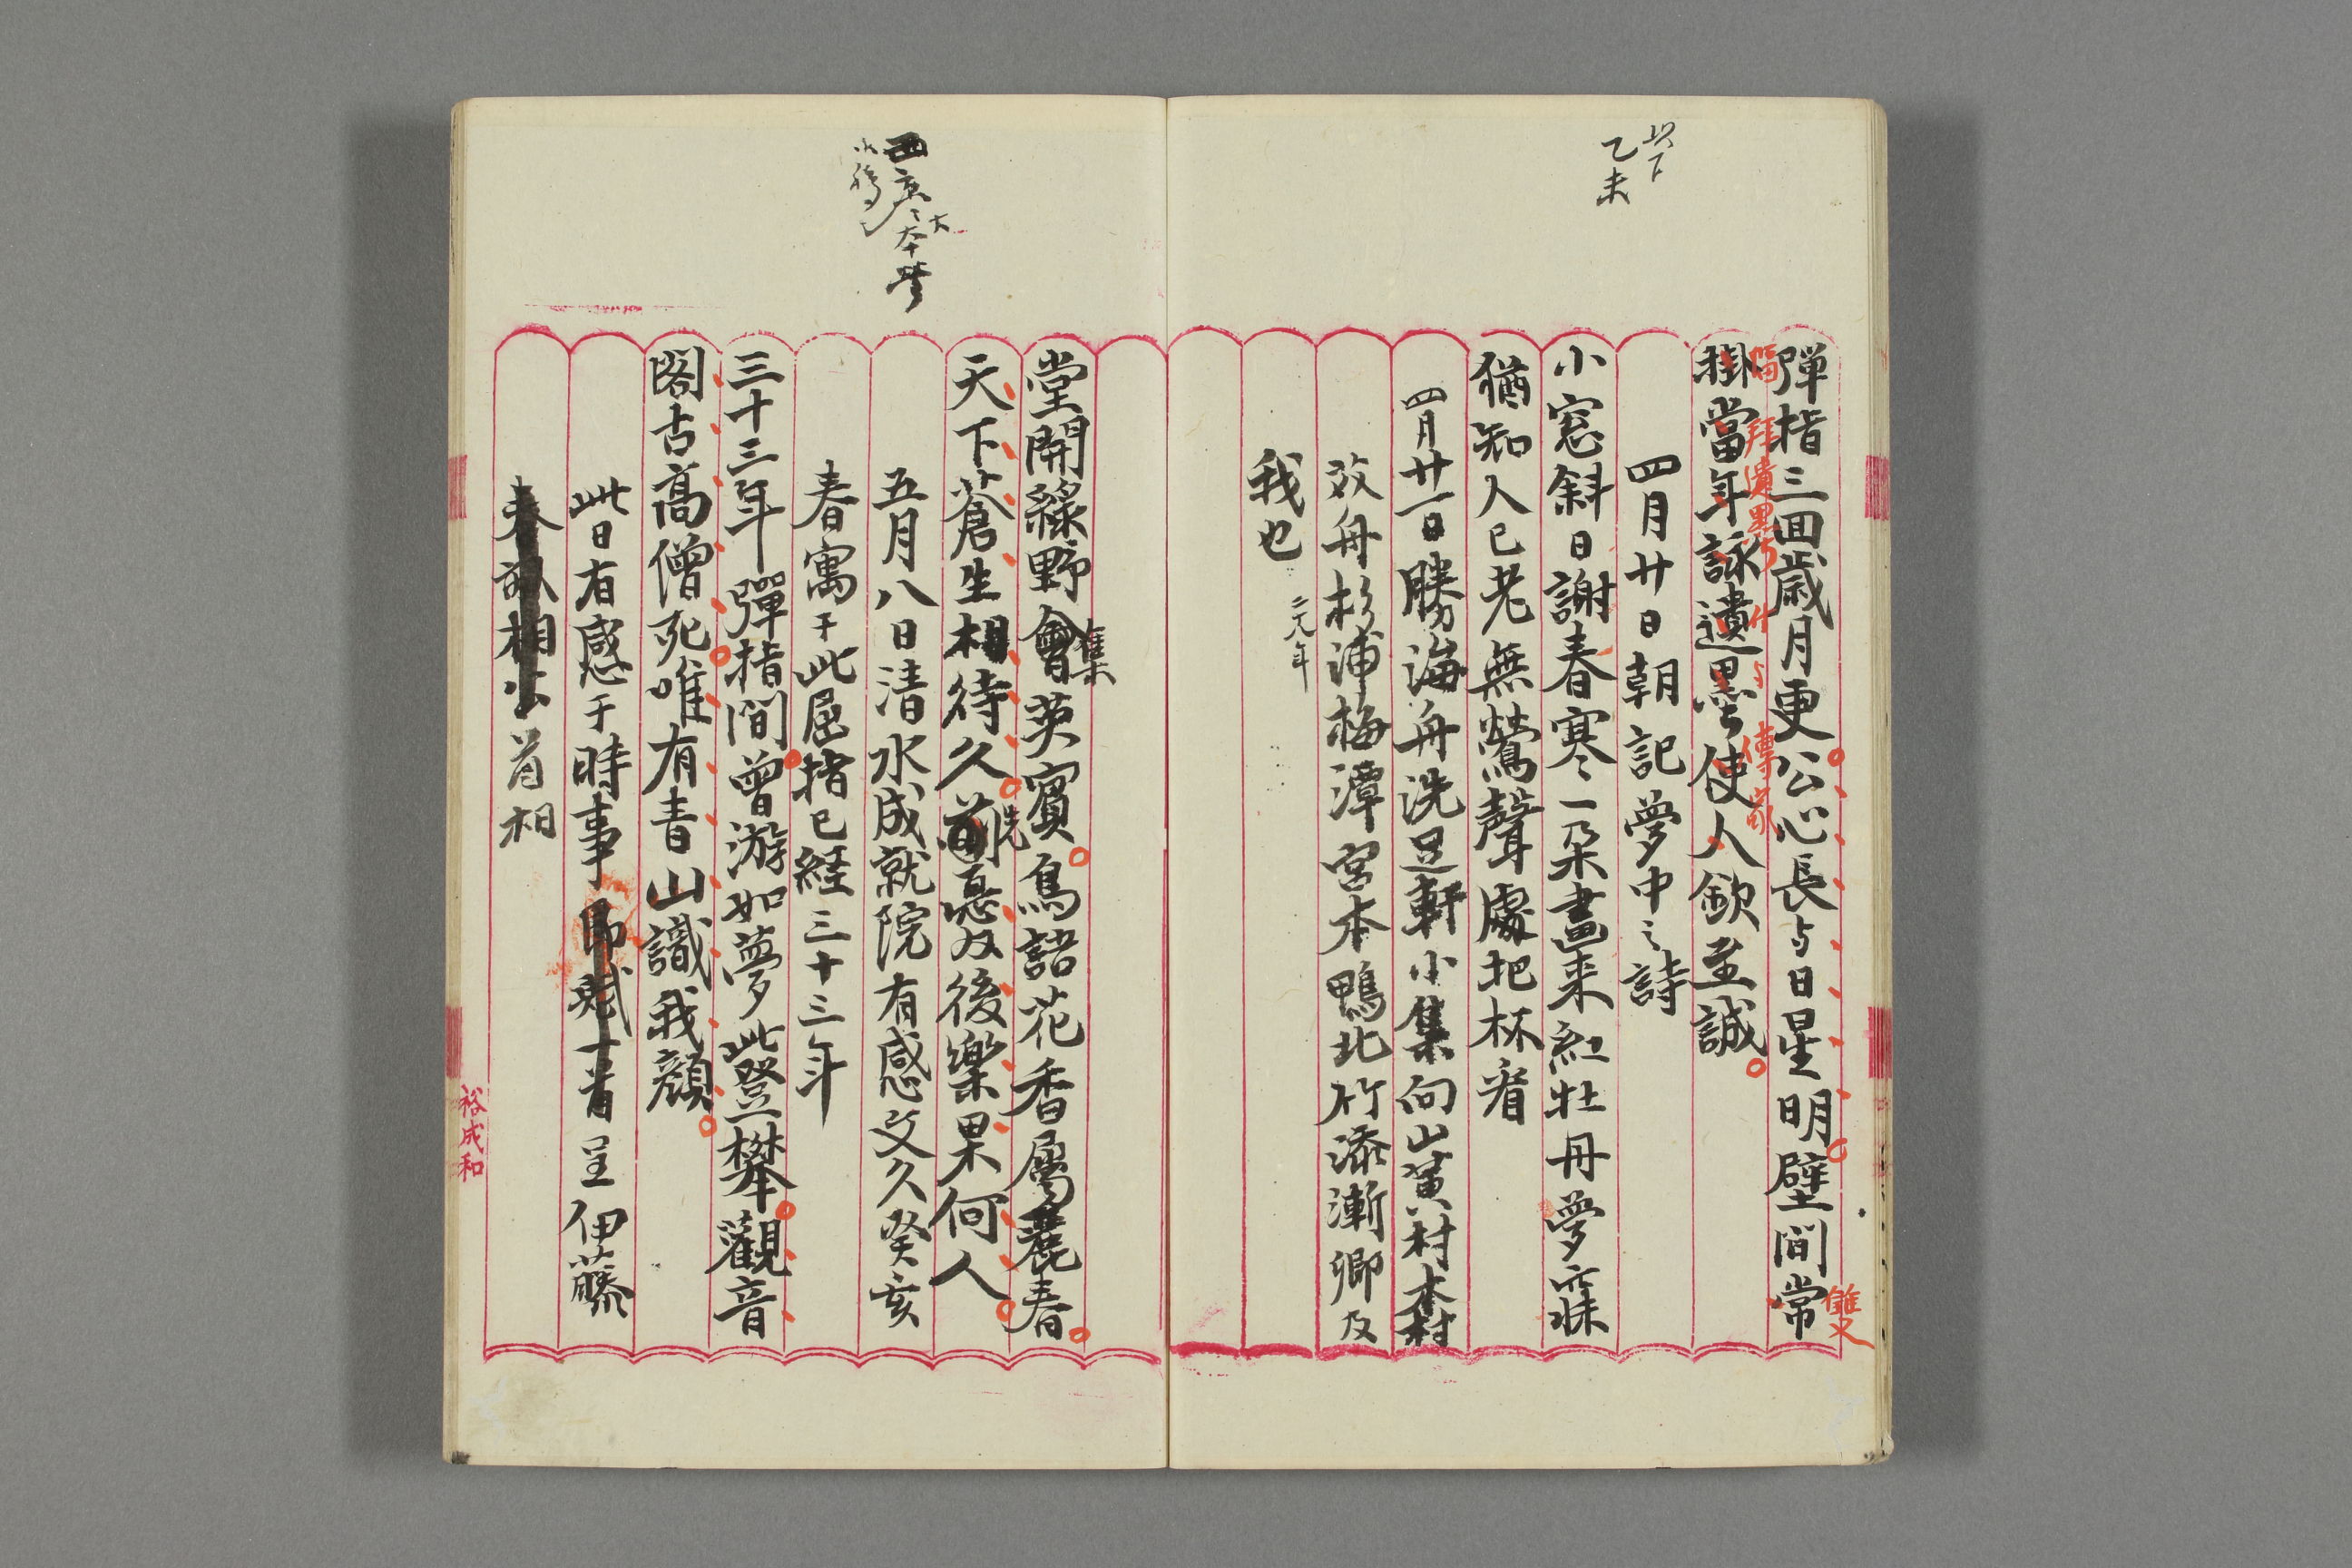 以下
乙未
彈指三回歳月更公心長与日星明壁間常
雙又
掛當年詠遺墨使人欽至誠
拜遺墨
傳家
四月廿日朝記夢中之詩
小窓斜日謝春寒一朶畫来紅牡丹夢寐
猶知人已老無鶯聲處把杯看
四月廿一日勝海舟洗足軒小集向山黄村木村
芥舟杉浦梅潭宮本鴨北竹添漸卿及
我也
二六年
堂開緑野會英賓鳥語花香屬麗春
集
天下蒼生相待久前憂後樂果何人
先
五月八日清水成就院有感文久癸亥
春寓于此屈指已経三十三年
三十三年彈指間曾游如夢此登攀觀音
閣古高僧死唯有青山識我顔
此日有感于時事即賦一首呈伊藤
春畝相公首相
裕成和